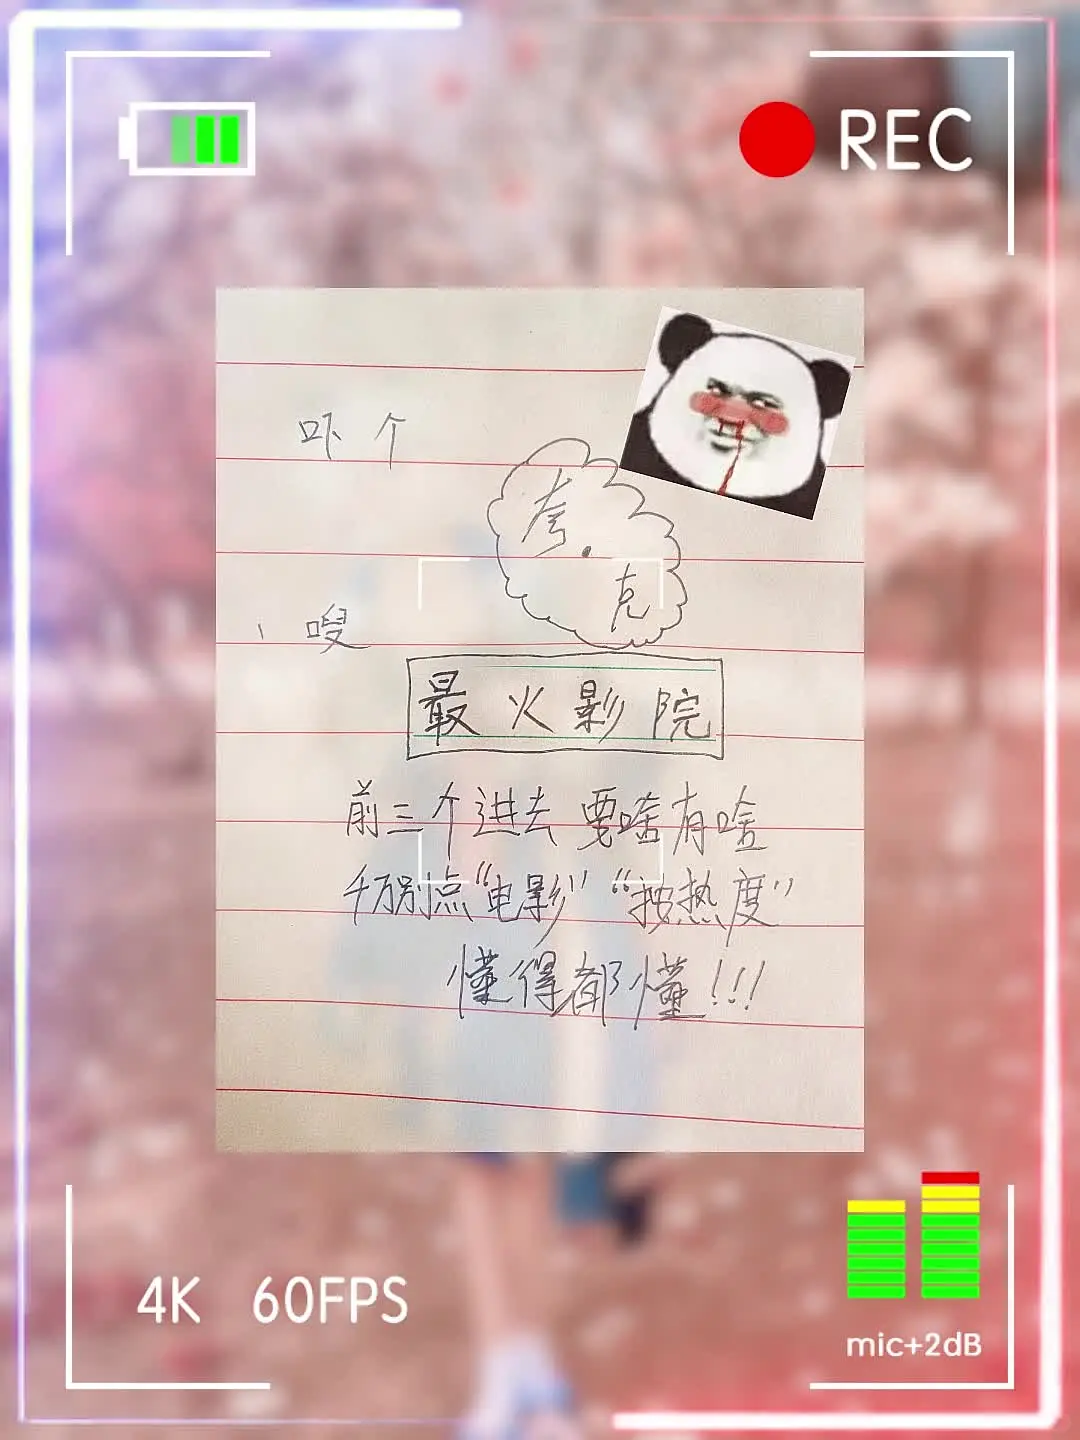 REC
吓个
夸.
克
、嗖
最火影院
前三个进去 要啥有啥
千万别点“电影”“按热度”
懂得都懂!!!
4K 60FPS
mic+2dB